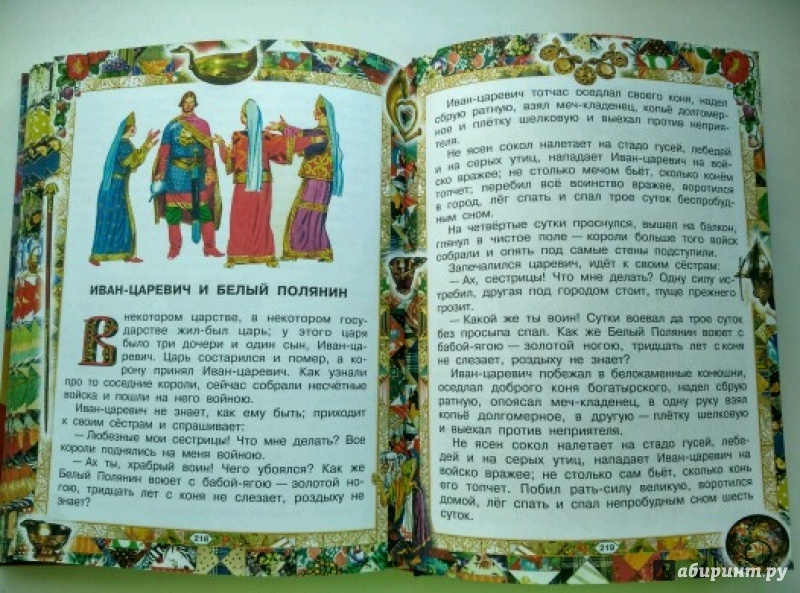 ИВАН-ЦАРЕВИЧ И БЕЛЫЙ ПОЛЯНИН
В некотором царстве, в некотором госу-
дарстве жил-был царь; у этого царя
было три дочери и один сын, Иван-ца-
ревич. Царь состарился и помер, а ко-
рону принял Иван-царевич. Как узнали
про то соседние короли, сейчас собрали несчётные
войска и пошли на него войною.
Иван-царевич не знает, как ему быть; приходит
к своим сёстрам и спрашивает:
— Любезные мои сестрицы! Что мне делать? Все
короли поднялись на меня войною.
— Ах ты, храбрый воин! Чего убоялся? Как же
Белый Полянин воюет с бабой-ягою — золотой но-
гою, тридцать лет с коня не слезает, роздыху не
знает?
218
Иван-царевич тотчас оседлал своего коня, надел
сбрую ратную, взял меч-кладенец, копьё долгомер-
ное и плётку шелковую и выехал против неприя-
теля.
Не ясен сокол налетает на стадо гусей, лебедей
и на серых утиц, нападает Иван-царевич на вой-
ско вражее; не столько мечом бьёт, сколько конём
топчет; перебил всё воинство вражее, воротился
в город, лёг спать и спал трое суток беспробуд-
ным сном.
На четвёртые сутки проснулся, вышел на балкон,
глянул в чистое поле — короли больше того войск
собрали и опять под самые стены подступили.
Запечалился царевич, идёт к своим сёстрам:
— Ах, сестрицы! Что мне делать? Одну силу ис-
требил, другая под городом стоит, пуще прежнего
грозит.
— Какой же ты воин! Сутки воевал да трое суток
без просыпа спал. Как же Белый Полянин воюет с
бабой-ягою — золотой ногою, тридцать лет с коня
не слезает, роздыху не знает?
Иван-царевич побежал в белокаменные конюшни,
оседлал доброго коня богатырского, надел сбрую
ратную, опоясал меч-кладенец, в одну руку взял
копьё долгомерное, в другую — плётку шелковую
и выехал против неприятеля.
Не ясен сокол налетает на стадо гусей, лебе-
дей и на серых утиц, нападает Иван-царевич на
войско вражее; не столько сам бьёт, сколько конь
его топчет. Побил рать-силу великую, воротился
домой, лёг спать и спал непробудным сном шесть
суток.
219
абиринт.ру